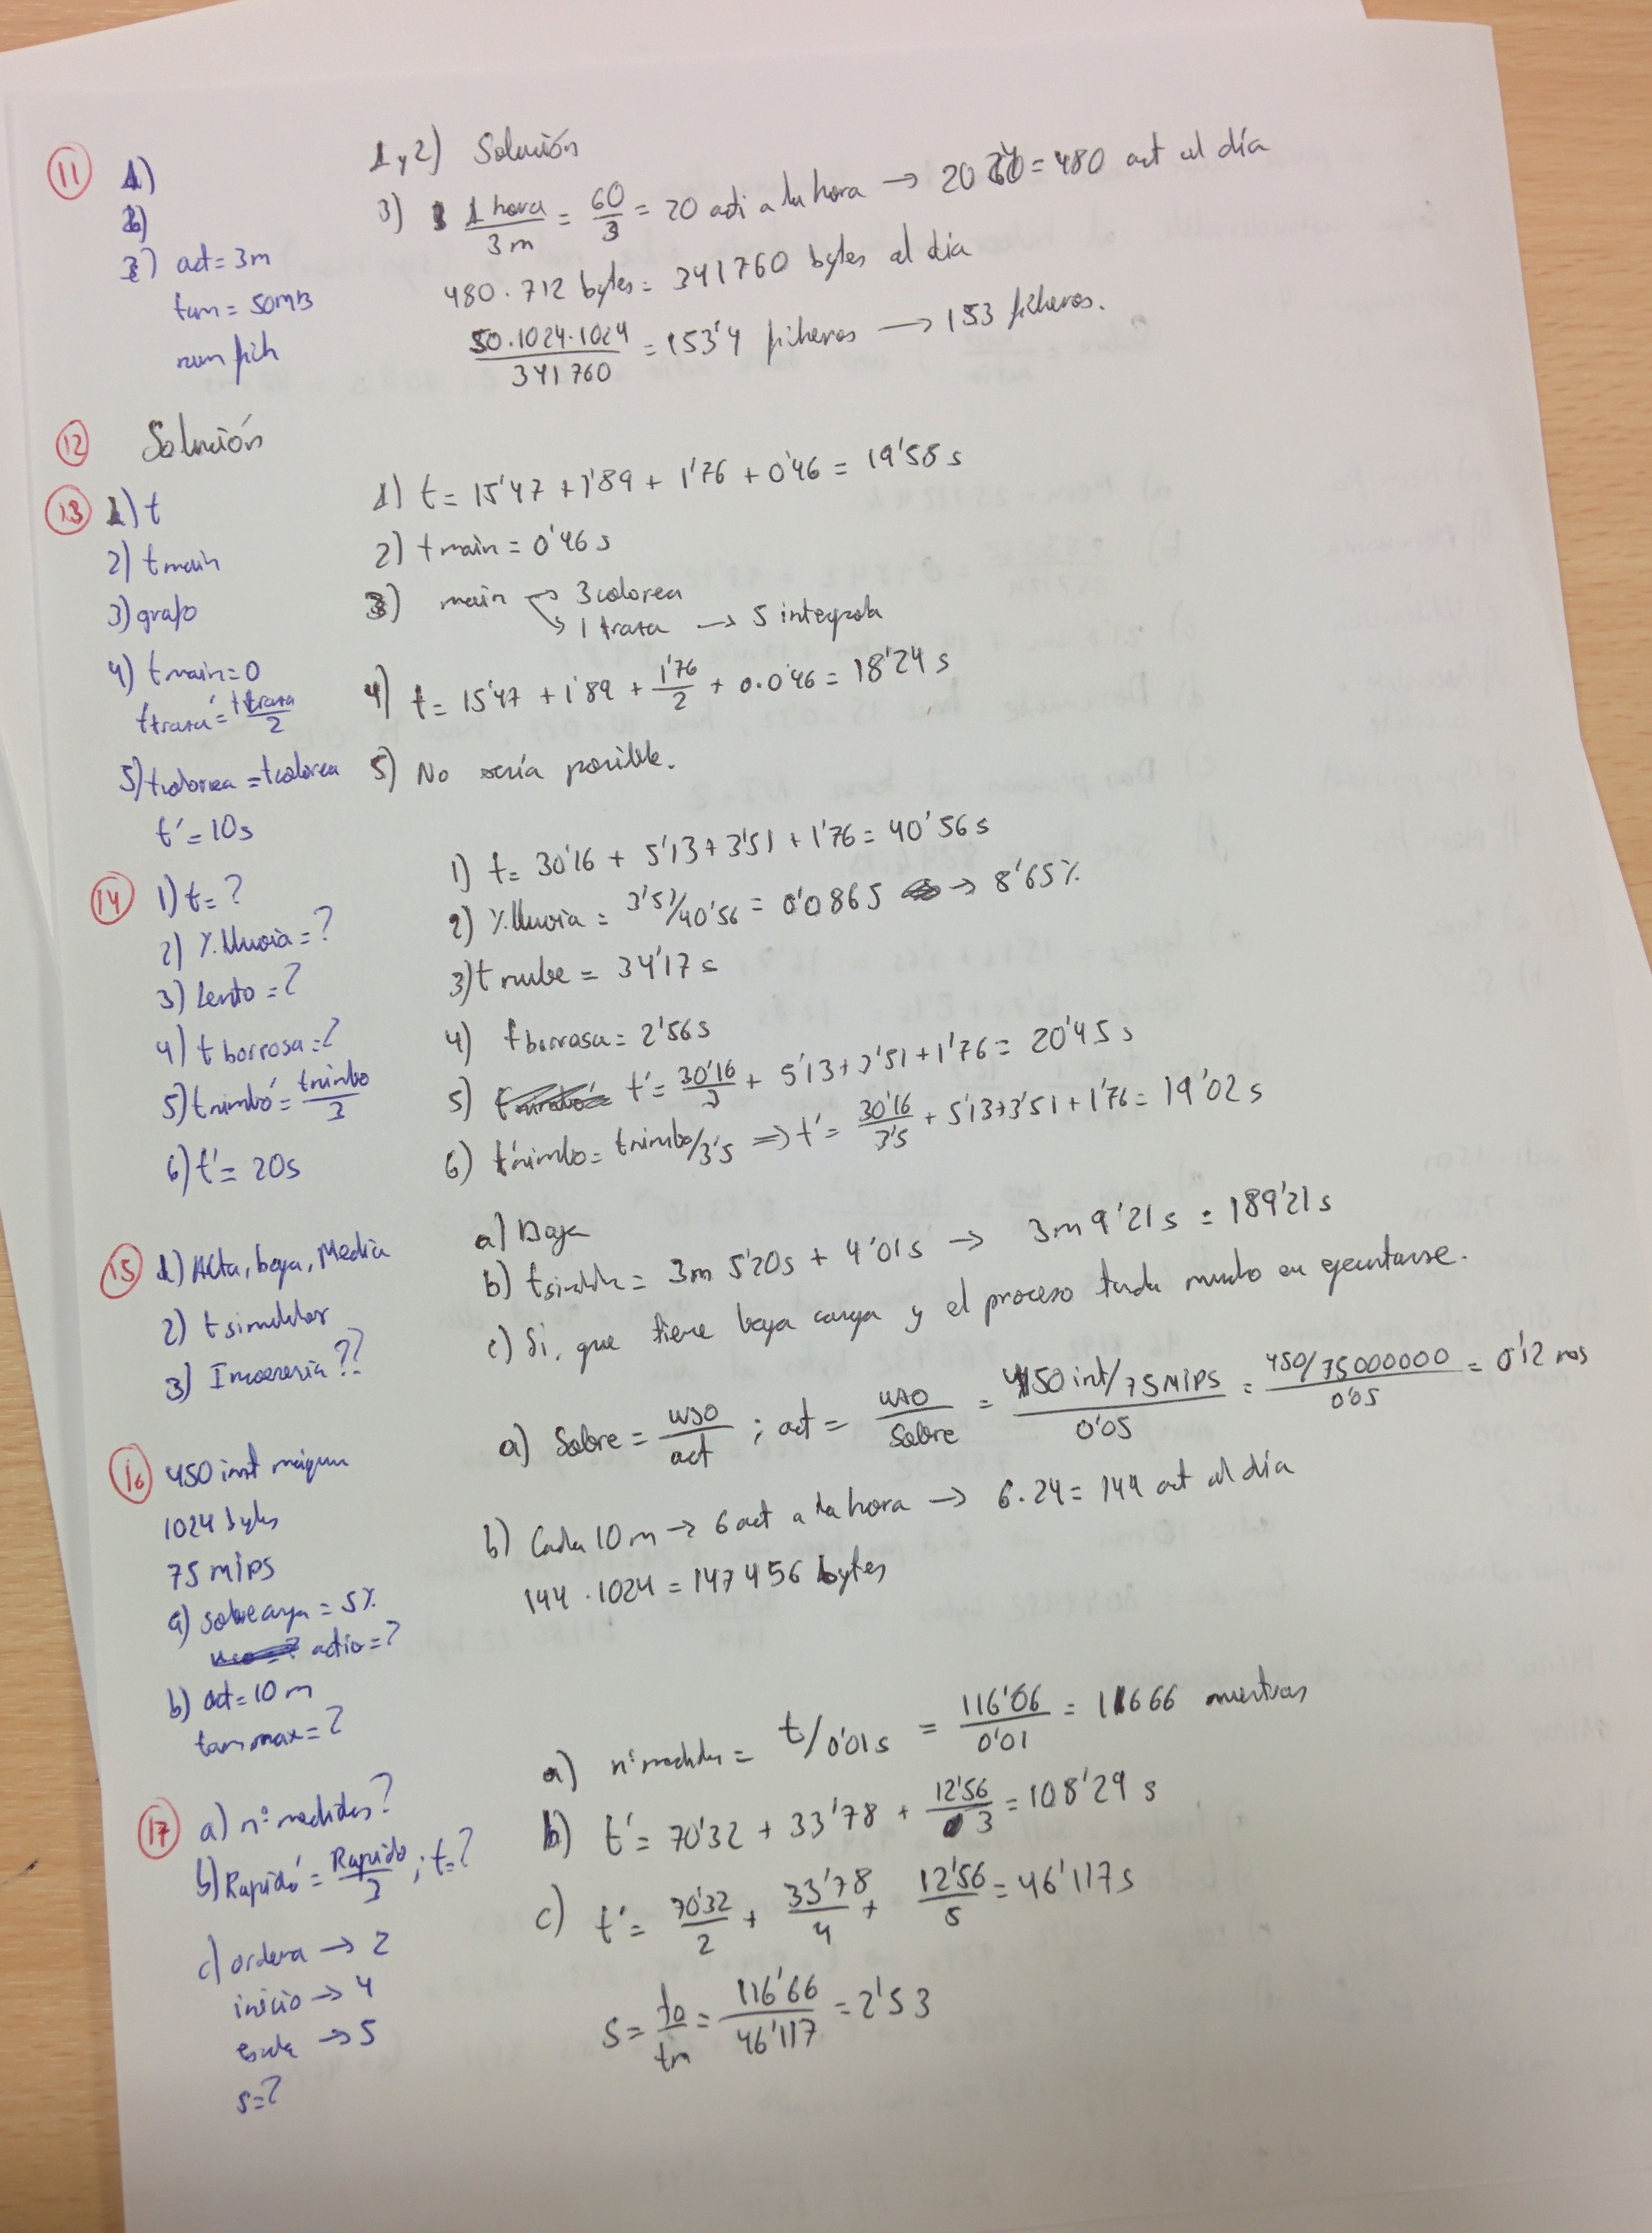 11 1)
2)
3) act = 3m
tam = 50MB
num fich
1 y 2) Solución
3) 1 hora / 3m = 60/3 = 20 acti a la hora → 20·24 = 480 act al día
480 · 712 bytes = 341760 bytes al día
50·1024·1024 / 341760 = 153'4 ficheros → 153 ficheros.
12 Solución
13 1) t
2) t main
3) grafo
4) t main = 0
t traza' = t traza / 2
5) t colorea = t colorea
t' = 10s
1) t = 15'47 + 1'89 + 1'76 + 0'46 = 19'58 s
2) t main = 0'46 s
3) main → 3 colorea
↘ 1 traza → 5 integrola
4) t = 15'47 + 1'89 + 1'76/2 + 0·0'46 = 18'24 s
5) No sería posible.
14 1) t = ?
2) % lluvia = ?
3) Lento = ?
4) t borrosa = ?
5) t nimbo' = t nimbo / 3
6) t' = 20s
1) t = 30'16 + 5'13 + 3'51 + 1'76 = 40'56 s
2) % lluvia = 3'51/40'56 = 0'0865 → 8'65%
3) t nube = 34'17 s
4) t borrosa = 2'56 s
5) t' = 30'16/3 + 5'13 + 3'51 + 1'76 = 20'45 s
6) t'nimbo = t nimbo/3'5 ⇒ t' = 30'16/3'5 + 5'13 + 3'51 + 1'76 = 19'02 s
15 1) Alta, baja, Media
2) t simulador
3) Incoerencia??
a) Baja
b) t = 3m 5'20s + 4'01s → 3m 9'21s = 189'21s
c) Si, que tiene baja carga y el proceso tarda mucho en ejecutarse.
16 450 inst máquina
1024 bytes
75 MIPS
a) sobrecarga = 5%
activ = ?
b) act = 10 m
tam max = ?
a) Sobre = uso / act ; act = uso / Sobre = 450 int/75 MIPS / 0'05 = 450/75000000 / 0'05 = 0'12 ms
b) Cada 10 m → 6 act a la hora → 6·24 = 144 act al día
144 · 1024 = 147456 bytes
17 a) nº medidas?
b) Rapido' = Rapido / 3 ; t = ?
c) ordena → 2
inicio → 4
→ 5
s = ?
a) nº medidas = t/0'01s = 116'06 / 0'01 = 11666 muestras
b) t' = 70'32 + 33'78 + 12'56/3 = 108'29 s
c) t' = 70'32/2 + 33'78/4 + 12'56/5 = 46'117 s
s = to/tm = 116'66 / 46'117 = 2'53